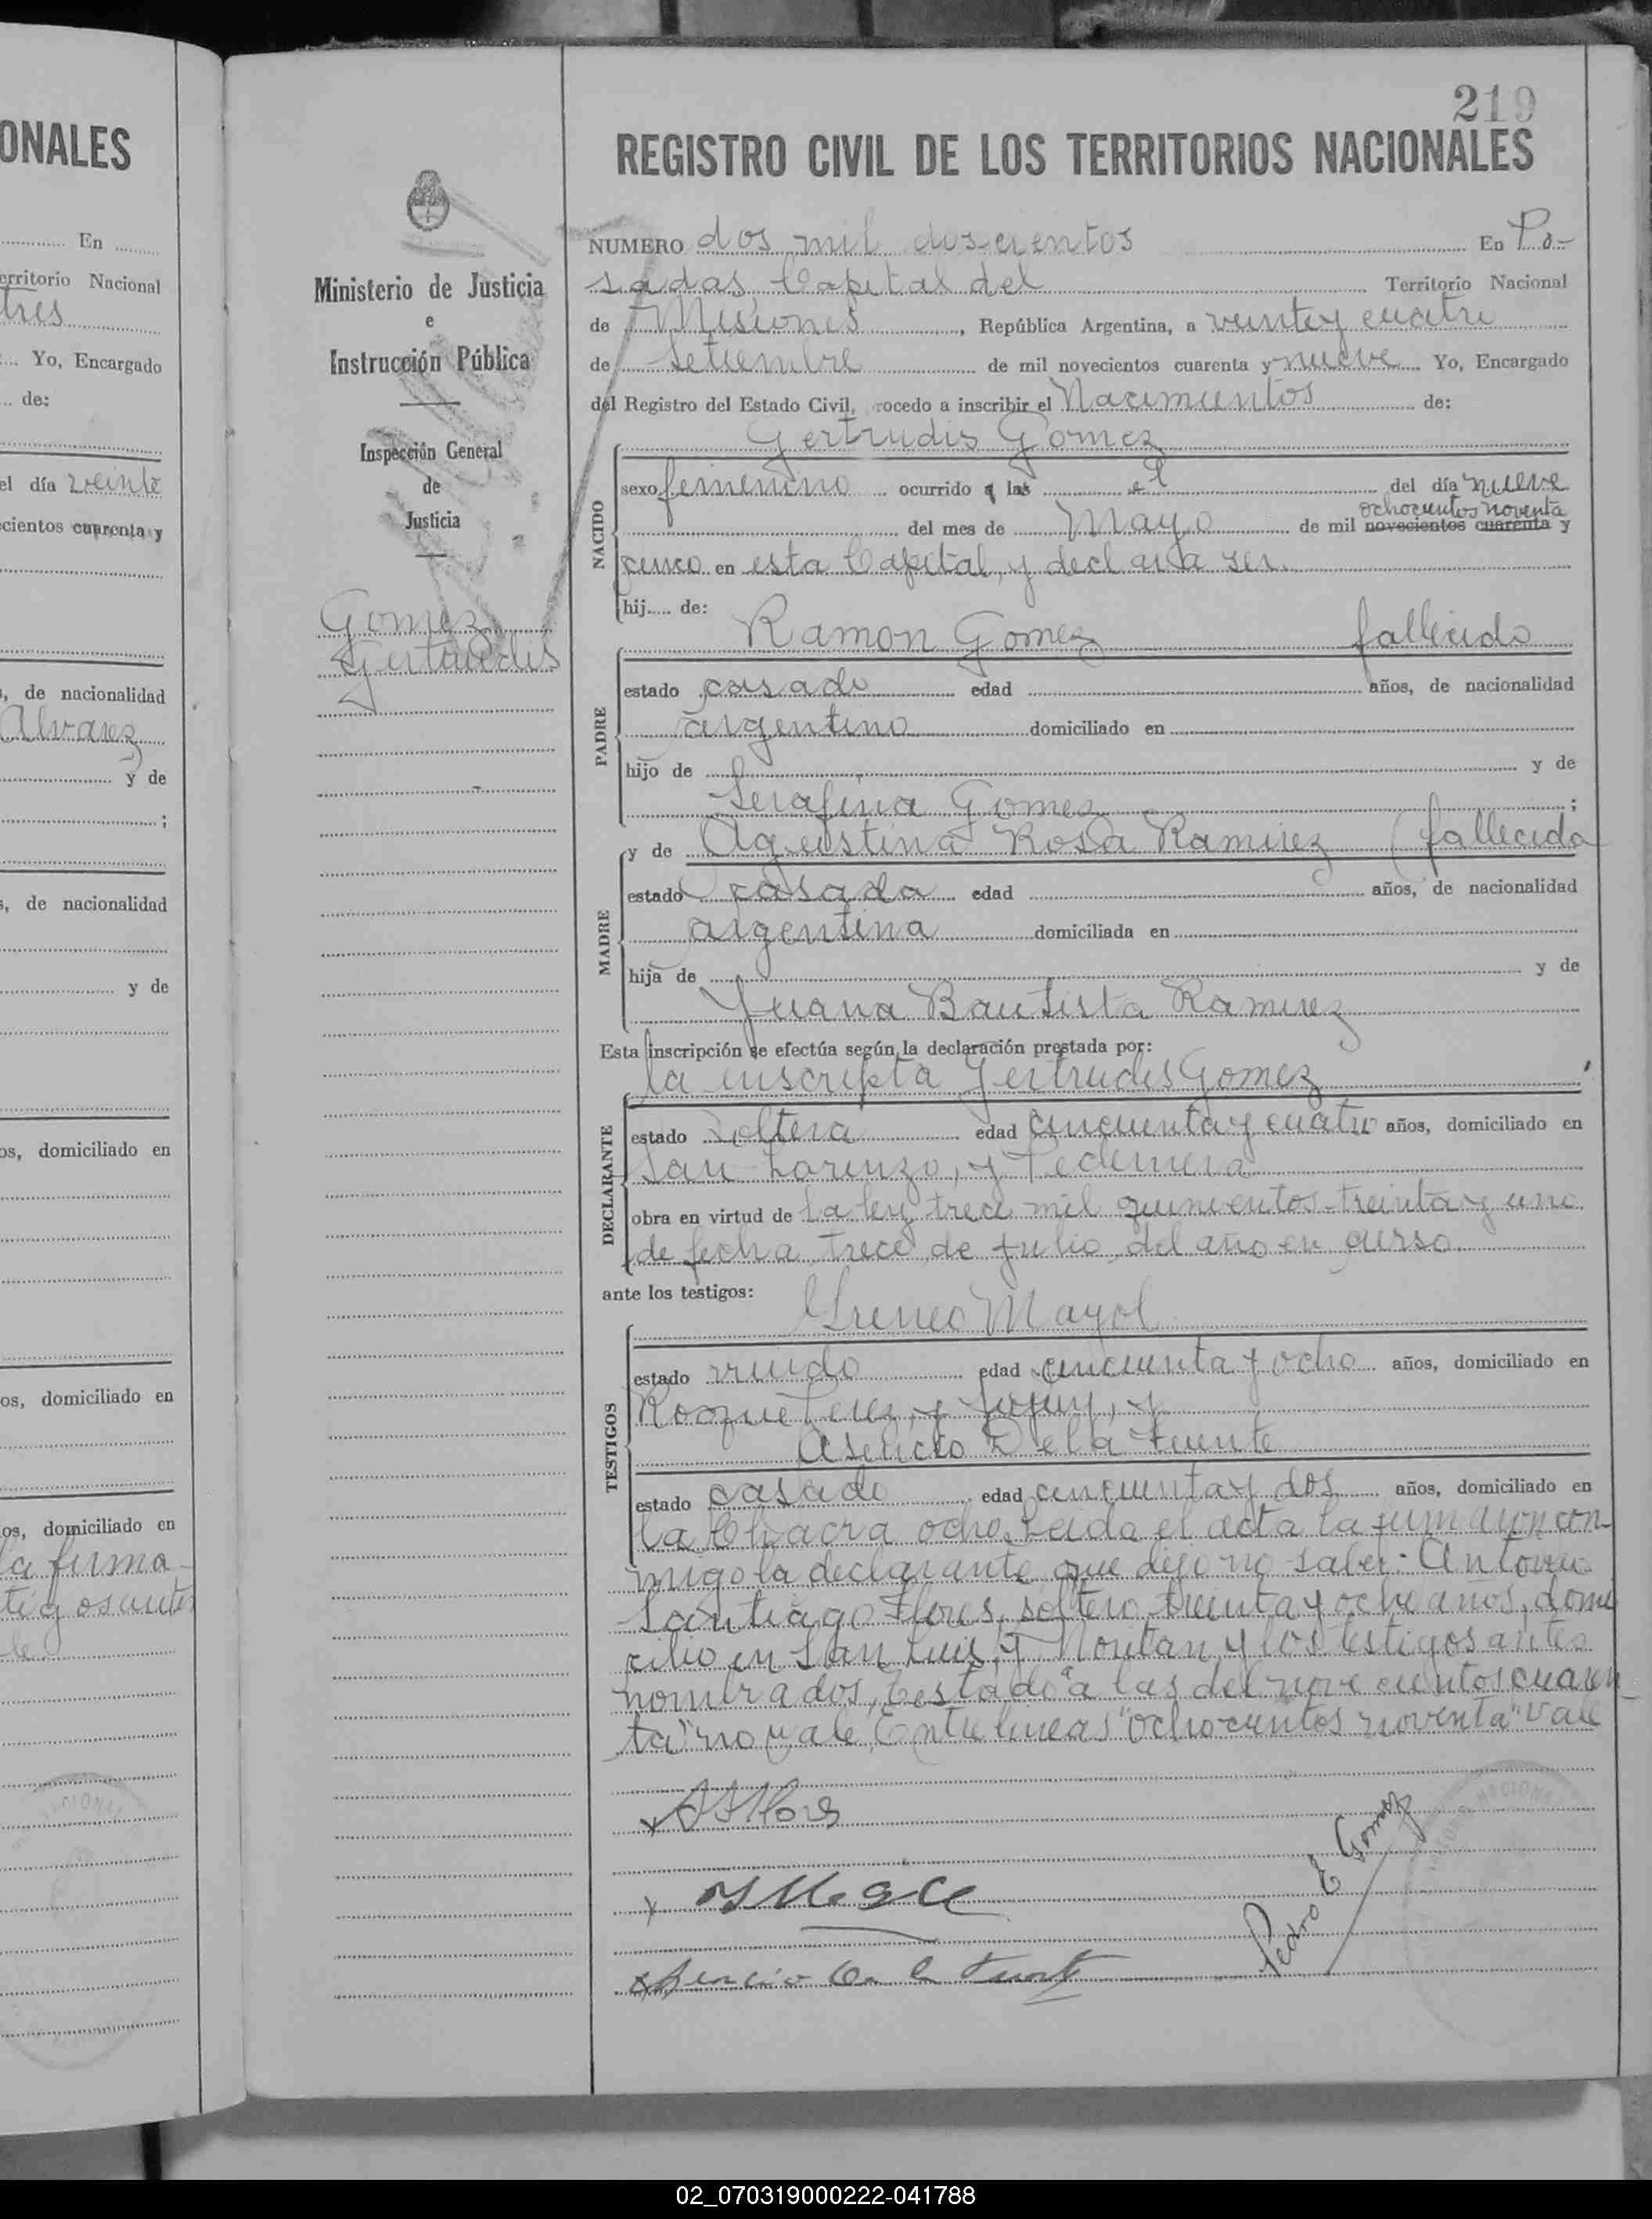 ONALES
En
erritorio Nacional
tres
Yo, Encargado
de:
el día veinte
cientos cuarenta y
, de nacionalidad
Alvarez
y de
;
s, de nacionalidad
y de
os, domiciliado en
os, domiciliado en
os, domiciliado en
la firma
tigos ante
Ministerio de Justicia
e
Instrucción Pública
Inspección General
de
Justicia
Gomez
Gertrudis
219
REGISTRO CIVIL DE LOS TERRITORIOS NACIONALES
NUMERO dos mil doscientos En Po-
sadas, Capital del Territorio Nacional
de Misiones, República Argentina, a veinte y cuatro
de Setiembre de mil novecientos cuarenta y nueve Yo, Encargado
del Registro del Estado Civil, rocedo a inscribir el Nacimientos de:
Gertrudis Gomez
NACIDO
sexo femenino ocurrido a las el del día nueve
ochocientos noventa
del mes de Mayo de mil novecientos cuarenta y
cinco en esta Capital, y declara ser.
hij..... de:
Ramon Gomez fallecido
PADRE
estado casado edad años, de nacionalidad
argentino domiciliado en
hijo de y de
Serafina Gomez ;
y de Agustina Rosa Ramirez (fallecida
MADRE
estado casada edad años, de nacionalidad
argentina domiciliada en
hija de y de
Juana Bautista Ramirez
Esta inscripción se efectúa según la declaración prestada por:
la inscripta Gertrudis Gomez
DECLARANTE
estado soltera edad cincuenta y cuatro años, domiciliado en
San Lorenzo, y Pedernera
obra en virtud de la ley trece mil quinientos treinta y uno
de fecha trece de julio del año en curso
ante los testigos:
Ireneo Mayol
TESTIGOS
estado viudo edad cincuenta y ocho años, domiciliado en
Rooque Perez y Jujuy, y
Asencio De la Fuente
estado casado edad cincuenta y dos años, domiciliado en
la Chacra ocho. Leida el acta la firmaron con-
migo la declarante que dijo no saber. Antonio
Santiago Flores, soltero, treinta y ocho años, domi
cilio en San Luis, y Moritan y los testigos antes
nombrados, Testado "a las del nove cientos cuaren-
ta" no vale, Entre lineas "ochocientos noventa" vale
Pedro E Gomez
Asencio De la Fuente
02_070319000222-041788